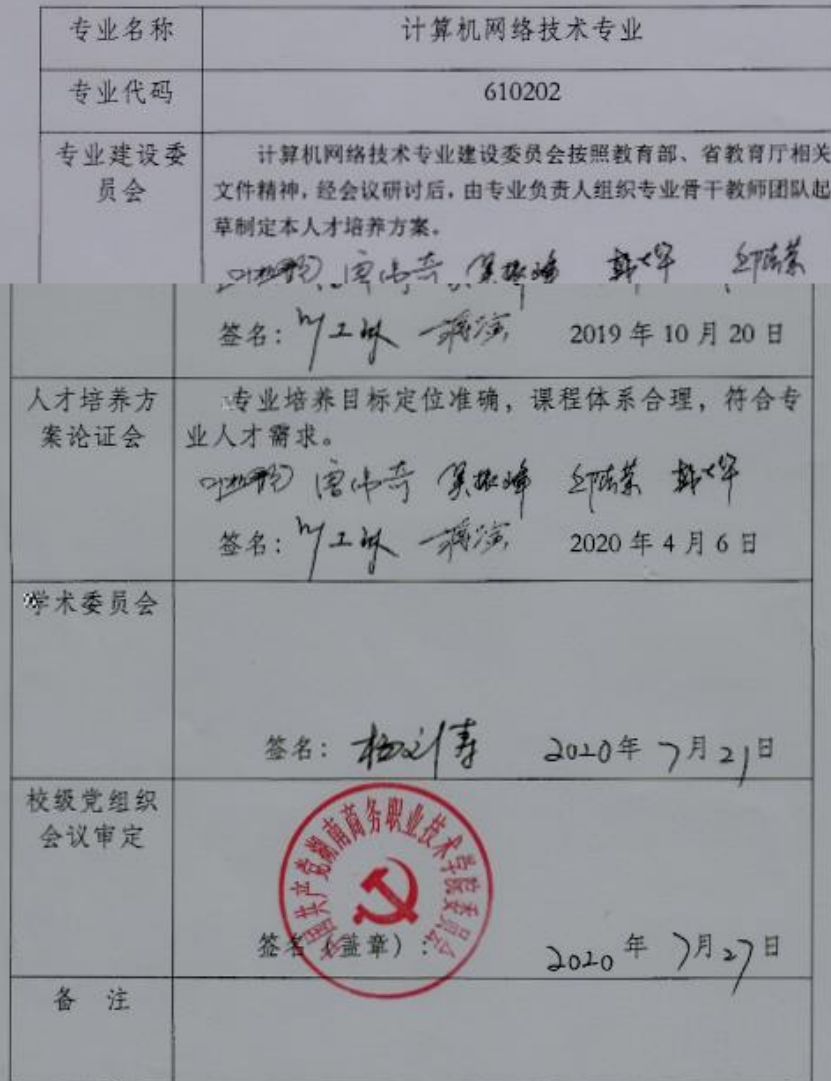 专业名称 计算机网络技术专业
专业代码 610202
专业建设委 计算机网络技术专业建设委员会按照教育部、省教育厅相关
员会 文件精神,经会议研讨后,由专业负责人组织专业骨干教师团队起
草制定本人才培养方案。
唐伟奇 吴振峰
签名: 蒋演 2019年10月20日
人才培养方 专业培养目标定位准确,课程体系合理,符合专
案论证会 业人才需求。
唐伟奇 吴振峰
签名: 蒋演 2020年4月6日
学术委员会
签名: 2020年7月21日
校级党组织
会议审定
中国共产党湖南商务职业技术学院委员会
签名(盖章): 2020年7月27日
备 注